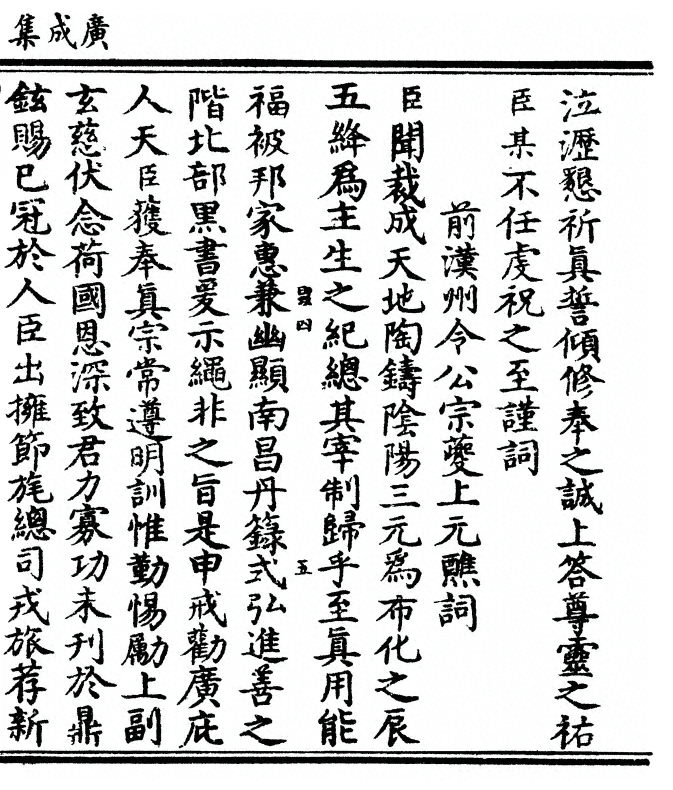 廣成集
泣瀝懇祈真誓傾修奉之誠上答尊靈之祐
臣某不任虔祝之至謹詞
前漢州令公宗夔上元醮詞
臣聞裁成天地陶鑄陰陽三元為布化之辰
五絳為主生之紀總其宰制歸乎至真用能
五
福被邦家惠兼幽顯南昌丹籙式弘進善之
階北部黑書爰示繩非之旨是申戒勸廣庇
人天臣獲奉真宗常遵明訓惟勤惕勵上副
玄慈伏念荷國恩深致君力寡功未刊於鼎
鉉賜已冠於人臣出擁節旄總司戎旅荐新